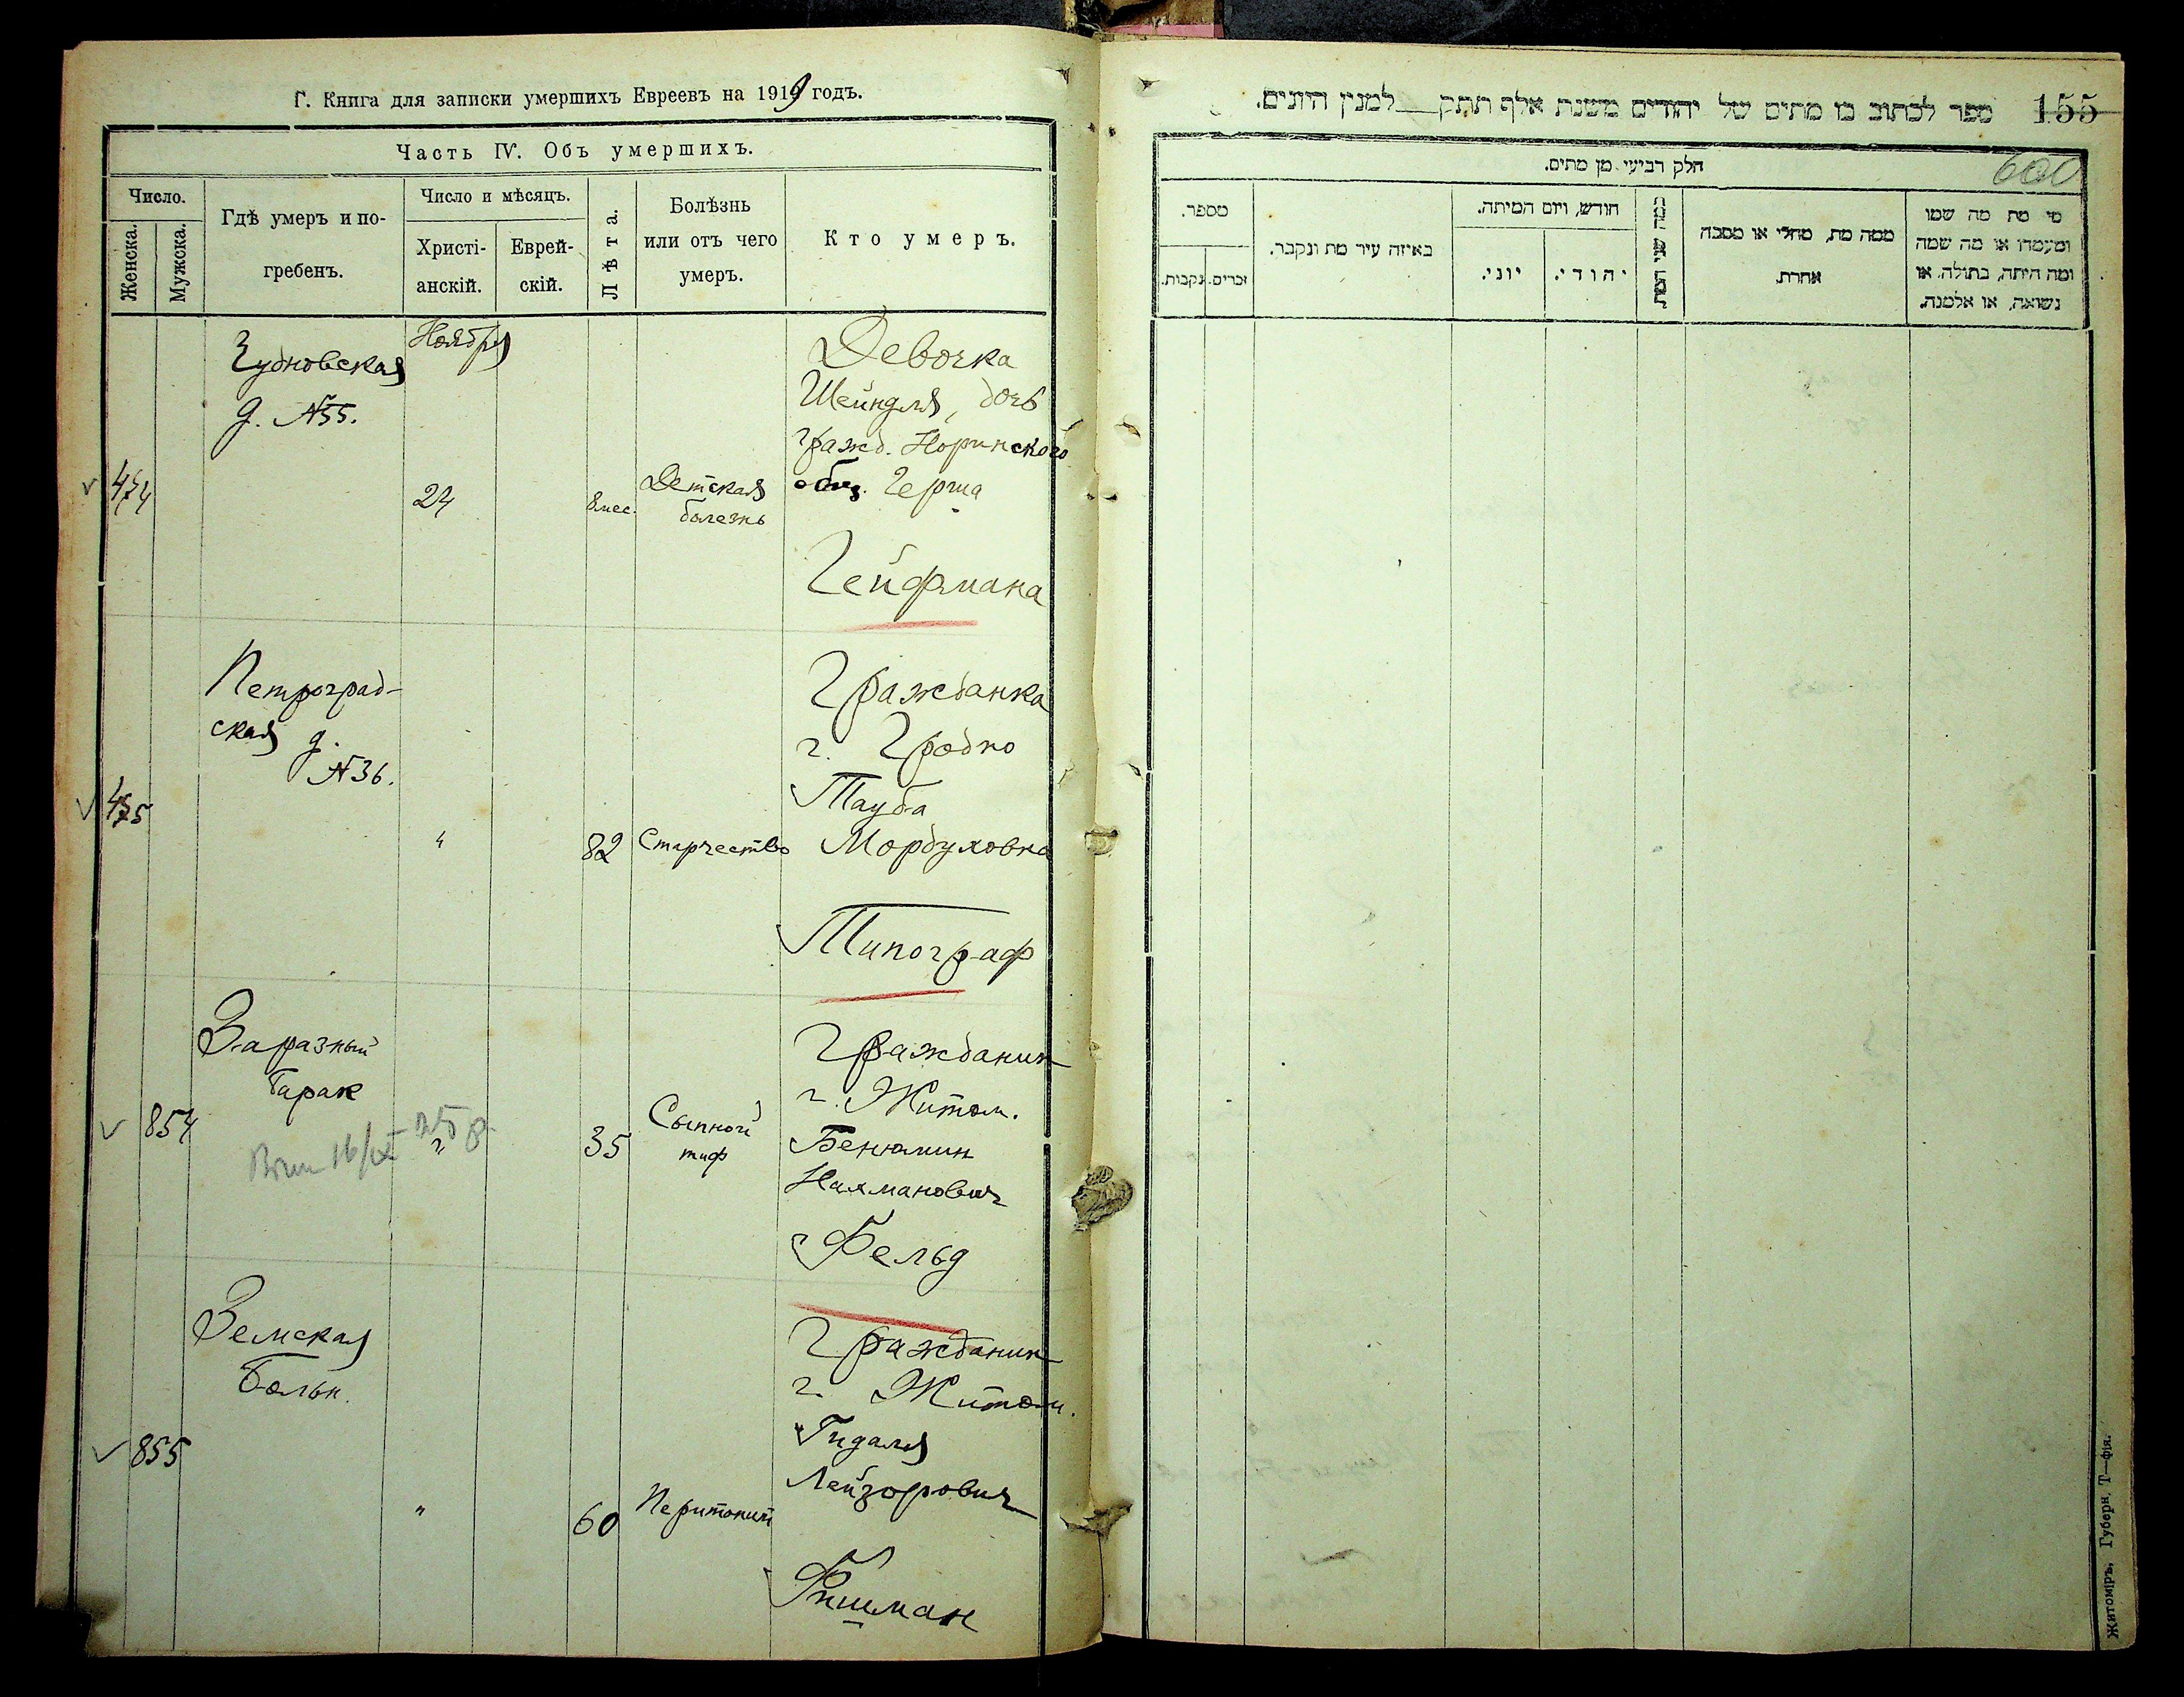 Г. Книга для записи умершихъ Евреевъ на 1919 годъ.
Часть IV. Объ умершихъ.
Число.
Женска.
Мужска.
Гдѣ умеръ и по-
гребенъ.
Число и мѣсяцъ.
Христі-
анскій.
Еврей-
скій.
Лѣта.
Болѣзнь
или отъ чего
умеръ.
Кто умеръ.
474
Чудновская
д. №55.
Ноября
24
8 мес.
Детская
болезнь
Девочка
Шейндля, дочь
гражд. Норинского
общ. Герша
Гейфмана
475
Петроград-
ская д.
№36.
"
82
Старчество
Гражданка
г. Гродно
Тауба
Мордуховна
Типограф
854
Заразный
барак
"
35
Сыпной
тиф
Гражданин
г. Житом.
Бенюмин
Нахманович
Фельд
855
Земская
больн.
"
60
Перитонит
Гражданин
г. Житом.
Гидаля
Лейзорович
Фишман
155
ספר לכתוב בו מתים של יהודים משנת אלף תתק למנין היונים.
600
חלק רביעי מן מתים.
מספר.
זכרים.
נקבות.
באיזה עיר מת ונקבר.
חודש, ויום המיתה.
יוני.
יהודי.
כמה שני המת
ממה מת, מחלי או מסבה
אחרת.
מי מת מה שמו
ומעמדו או מה שמה
ומה היתה, בתולה, או
נשואה, או אלמנה.
Житоміръ, Губерн. Т—фія.